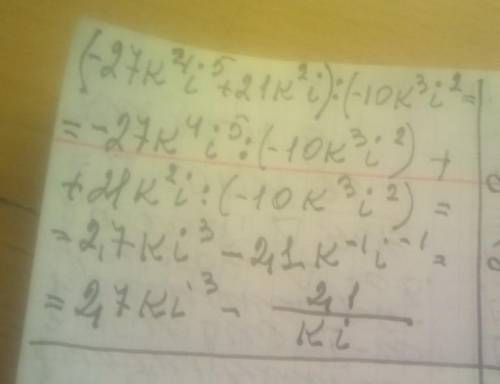 (-27к⁴i⁵+21к²i):(-10к³i²=
=-27к⁴i⁵:(-10к³i²)+
+21к²i:(-10к³i²)=
=2,7кi³-2,1к⁻¹i⁻¹=
=2,7кi³-2,1/кi